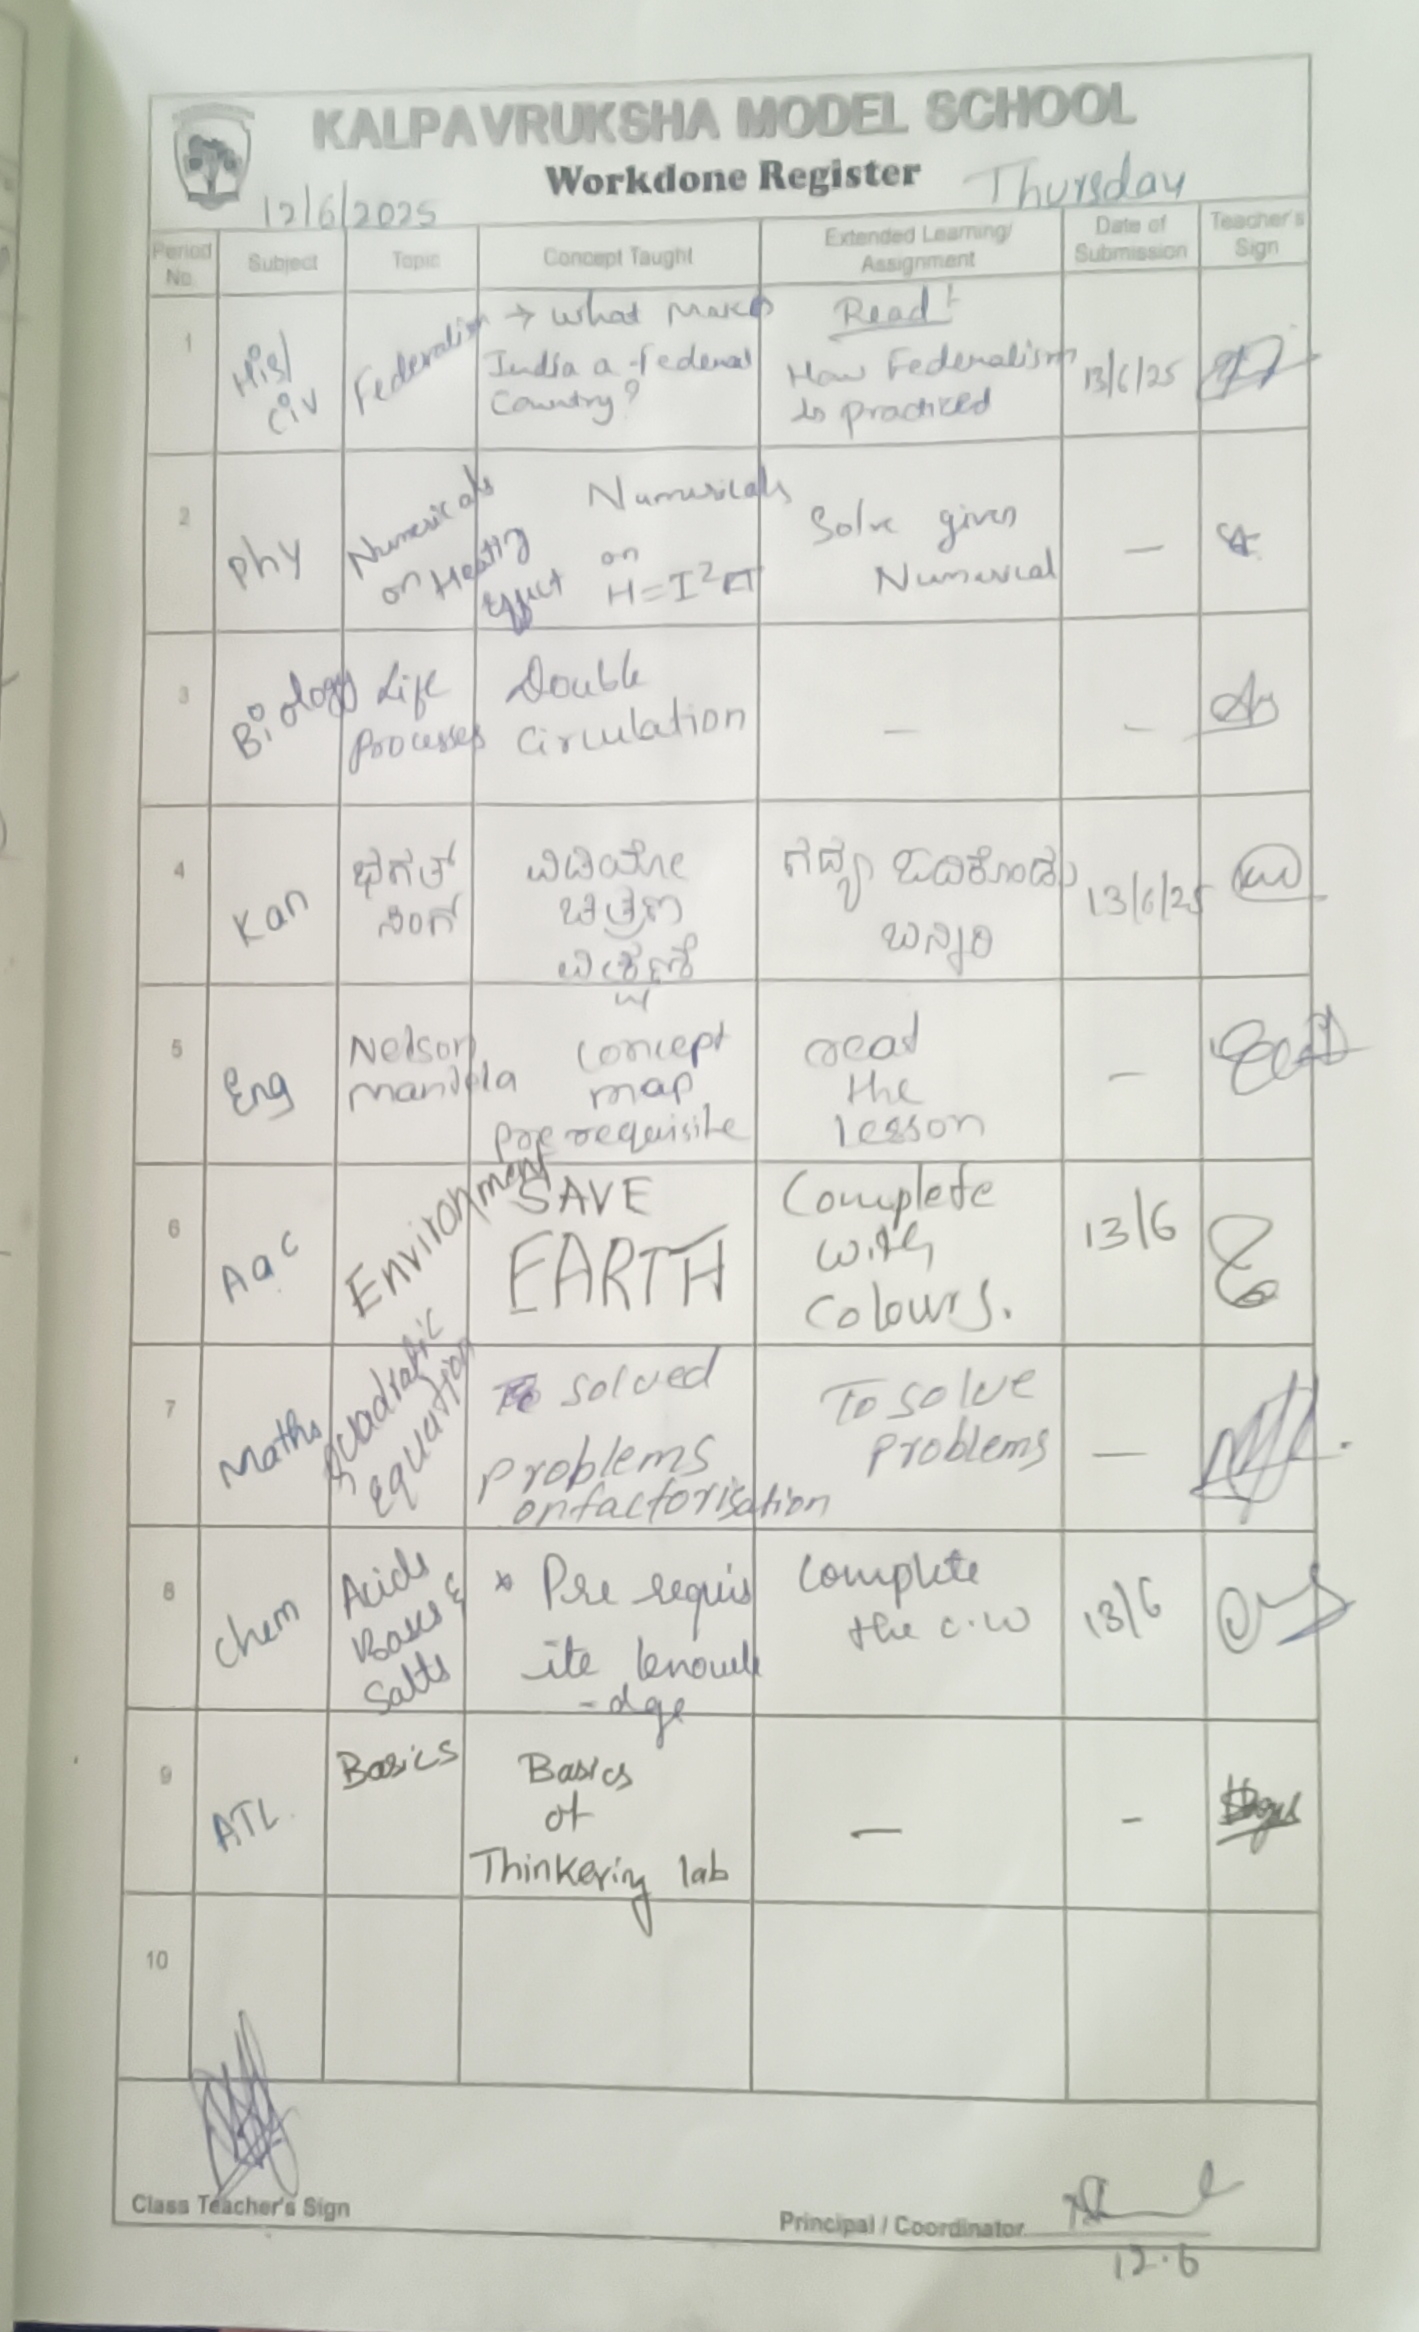 KALPAVRUKSHA MODEL SCHOOL
Workdone Register
12/6/2025
Thursday
Period No.
Subject
Topic
Concept Taught
Extended Learning/
Assignment
Date of
Submission
Teacher's
Sign
1
His/
civ
Federalism
→ what makes
India a federal
Country?
Read!
How Federalism
is practiced
13/6/25
2
Phy
Numericals
on Heating
Effect
Numericals
on
H=I²RT
Solve given
Numerical
—
3
Biology
Life
Processes
Double
Circulation
—
—
4
Kan
ಭಗತ್
ಸಿಂಗ್
ಚಿತ್ರಣ
ಗದ್ಯ ಓದಿಕೊಂಡು
ಬನ್ನಿರಿ
13/6/25
5
Eng
Nelson
Mandela
Concept
map
Pre requisite
read
the
lesson
—
6
A&C
Environment
SAVE
EARTH
Complete
with
Colours.
13/6
7
Maths
Quadratic
equation
solved
problems
on factorisation
To solve
problems
—
8
Chem
Acids
Bases &
Salts
* Pre requis
ite knowle
-dge
Complete
the c.w
13/6
9
ATL.
Basics
Basics
of
Thinkering lab
—
-
10
Class Teacher's Sign
Principal / Coordinator
12.6